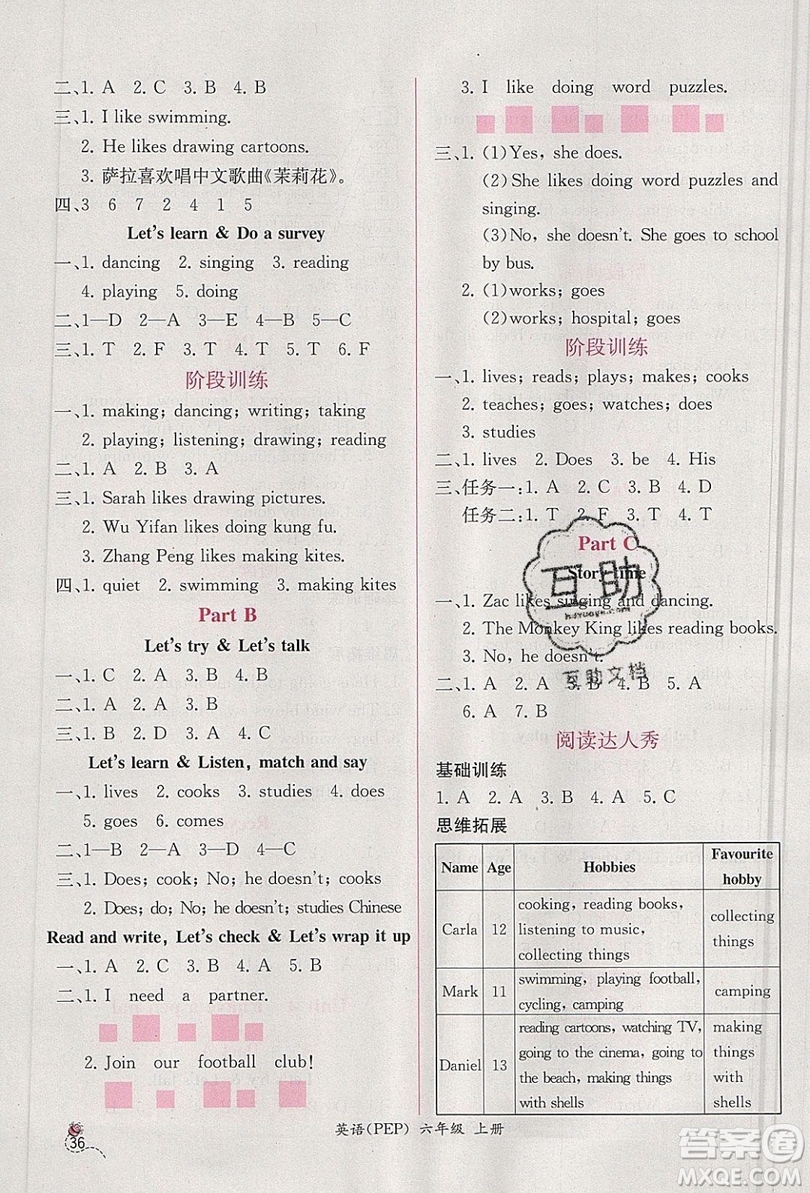 二、1. A 2. C 3. B 4. B
三、1. I like swimming.
2. He likes drawing cartoons.
3. 萨拉喜欢唱中文歌曲《茉莉花》。
四、3 6 7 2 4 1 5
Let's learn & Do a survey
一、1. dancing 2. singing 3. reading
4. playing 5. doing
二、1—D 2—A 3—E 4—B 5—C
三、1. T 2. F 3. T 4. T 5. T 6. F
阶段训练
一、1. making; dancing; writing; taking
2. playing; listening; drawing; reading
二、1. A 2. B 3. A
三、1. Sarah likes drawing pictures.
2. Wu Yifan likes doing kung fu.
3. Zhang Peng likes making kites.
四、1. quiet 2. swimming 3. making kites
Part B
Let's try & Let's talk
一、1. C 2. A 3. B 4. A 5. A
二、1. B 2. C 3. A 4. C
Let's learn & Listen, match and say
一、1. lives 2. cooks 3. studies 4. does
5. goes 6. comes
二、1—B 2—D 3—A 4—C
三、1. Does; cook; No; he doesn't; cooks
2. Does; do; No; he doesn't; studies Chinese
Read and write, Let's check & Let's wrap it up
一、1. A 2. C 3. B 4. A 5. B
二、1. I need a partner.
2. Join our football club!
3. I like doing word puzzles.
三、1. (1)Yes, she does.
(2)She likes doing word puzzles and
singing.
(3)No, she doesn't. She goes to school
by bus.
2. (1)works; goes
(2)works; hospital; goes
阶段训练
一、1. lives; reads; plays; makes; cooks
2. teaches; goes; watches; does
3. studies
二、1. lives 2. Does 3. be 4. His
三、任务一:1. A 2. C 3. B 4. D
任务二:1. T 2. F 3. T 4. T 5. F
Part C
Story time
一、1. Zac likes singing and dancing.
2. The Monkey King likes reading books.
3. No, he doesn't.
二、1. A 2. A 3. B 4. B 5. A
6. A 7. B
阅读达人秀
基础训练
1. A 2. A 3. B 4. A 5. C
思维拓展
Name Age Hobbies Favourite hobby
Carla 12 cooking, reading books, listening to music, collecting things collecting things
Mark 11 swimming, playing football, cycling, camping camping
Daniel 13 reading cartoons, watching TV, going to the cinema, going to the beach, making things with shells making things with shells
36
英语(PEP) 六年级 上册
互助
互助文档
答案圈
MXQE.COM